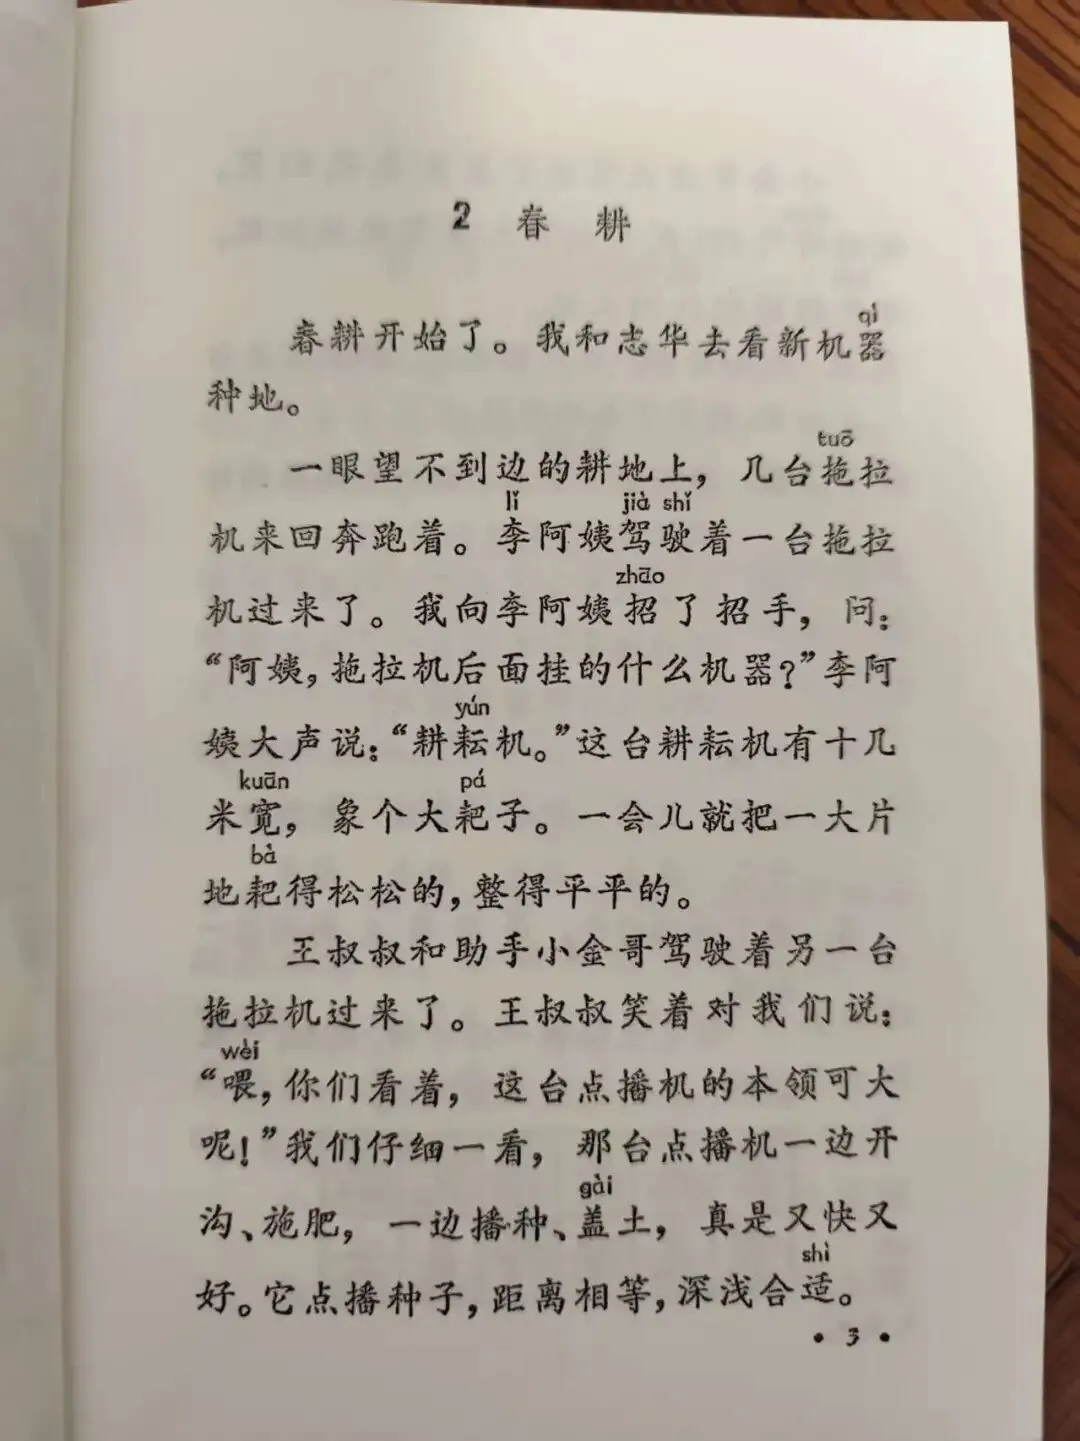 2 春 耕
qì
春耕开始了。我和志华去看新机器
种地。
tuō
一眼望不到边的耕地上，几台拖拉
lǐ jià shǐ
机来回奔跑着。李阿姨驾驶着一台拖拉
zhāo
机过来了。我向李阿姨招了招手，问：
“阿姨，拖拉机后面挂的什么机器？”李阿
yún
姨大声说：“耕耘机。”这台耕耘机有十几
kuān pá
米宽，象个大耙子。一会儿就把一大片
bà
地耙得松松的，整得平平的。
王叔叔和助手小金哥驾驶着另一台
拖拉机过来了。王叔叔笑着对我们说：
wèi
“喂，你们看着，这台点播机的本领可大
呢！”我们仔细一看，那台点播机一边开
gài
沟、施肥，一边播种、盖土，真是又快又
shì
好。它点播种子，距离相等，深浅合适。
• 3 •